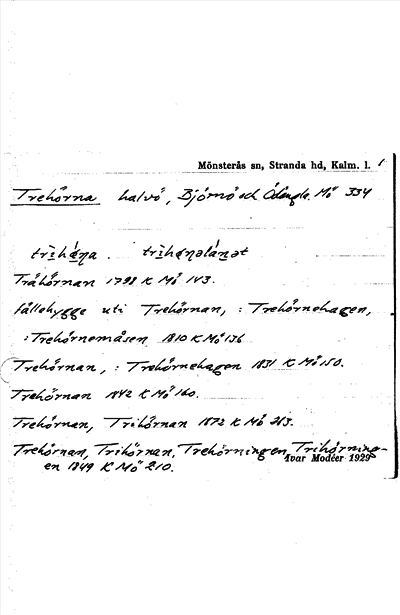 Mönsterås sn, Stranda hd, Kalm. l. 1
Trehörna halvö, Björnö och Ödängla. Mö 334
Tråhörnan 1798 K Mö 143.
fällehygge uti Trehörnan, : Trehörnehagen,
: Trehörnemåsen 1810 K Mö 136
Trehörnan, : Trehörnehagen 1831 K Mö 150.
Trehörnan 1842 K Mö 160.
Trehörnan, Trihörnan 1872 K Mö 213.
Trehörnan, Trihörnan, Trehörningen, Trihörning-
en 1849 K Mö 210.
Ivar Modéer 1929